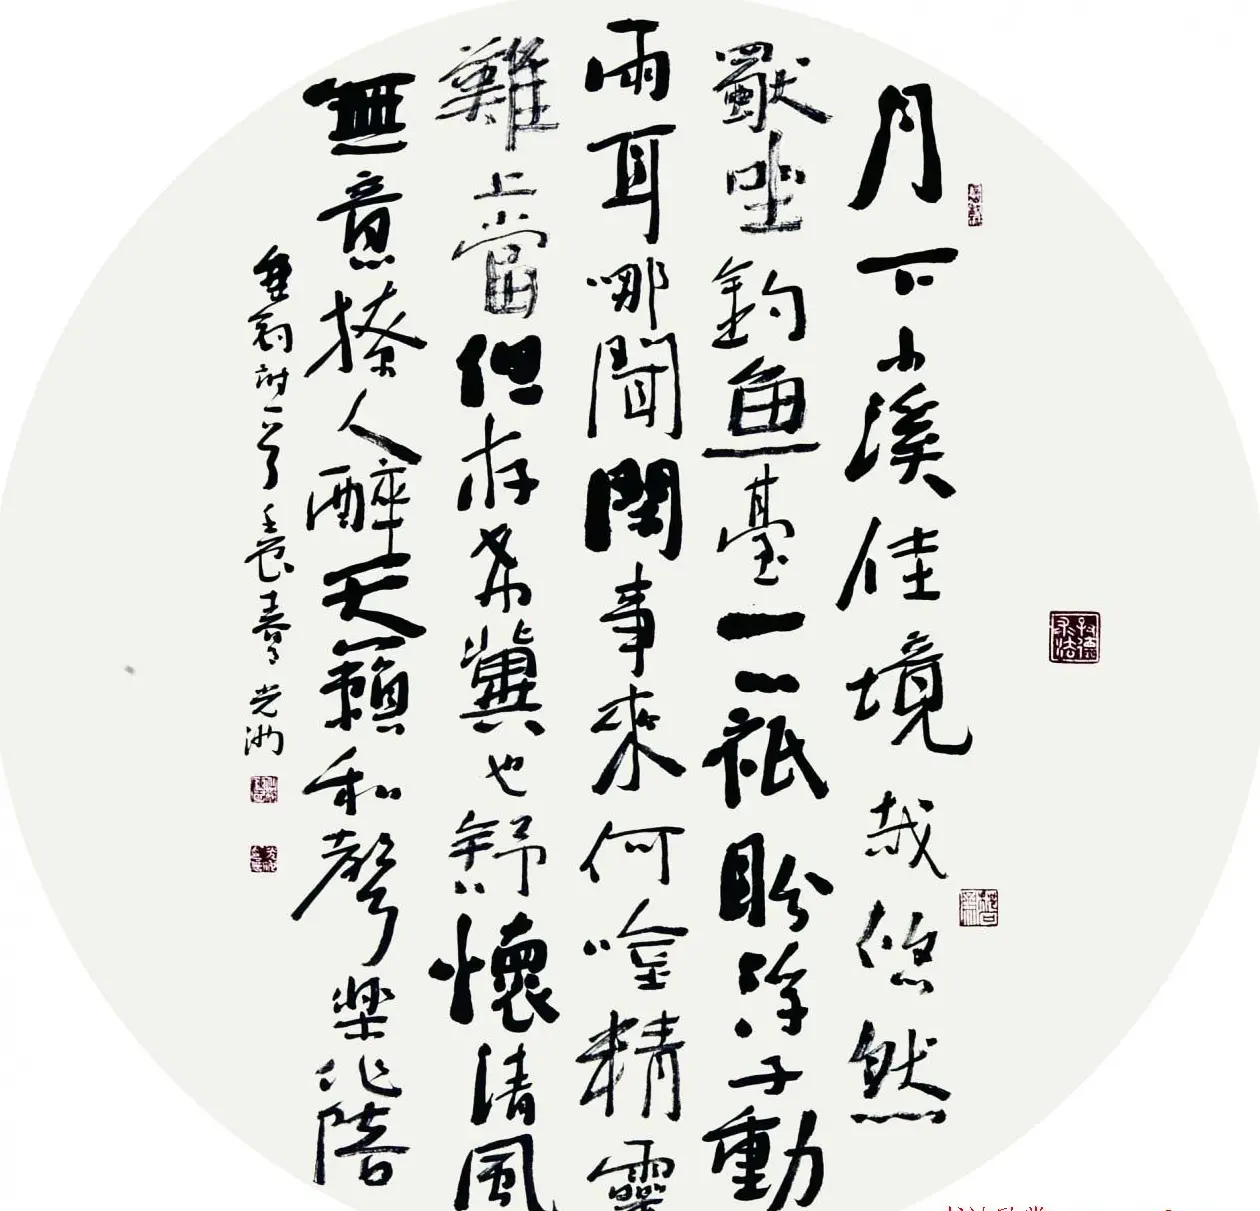 月下小溪佳境哉悠然
獨坐釣魚臺一心祇盼浮子動
兩耳哪聞閑事來何精靈
難上當但存希冀也舒懷清風
無意撩人醉天籟和聲樂作陪
垂釣詩一首壬辰春月光洲